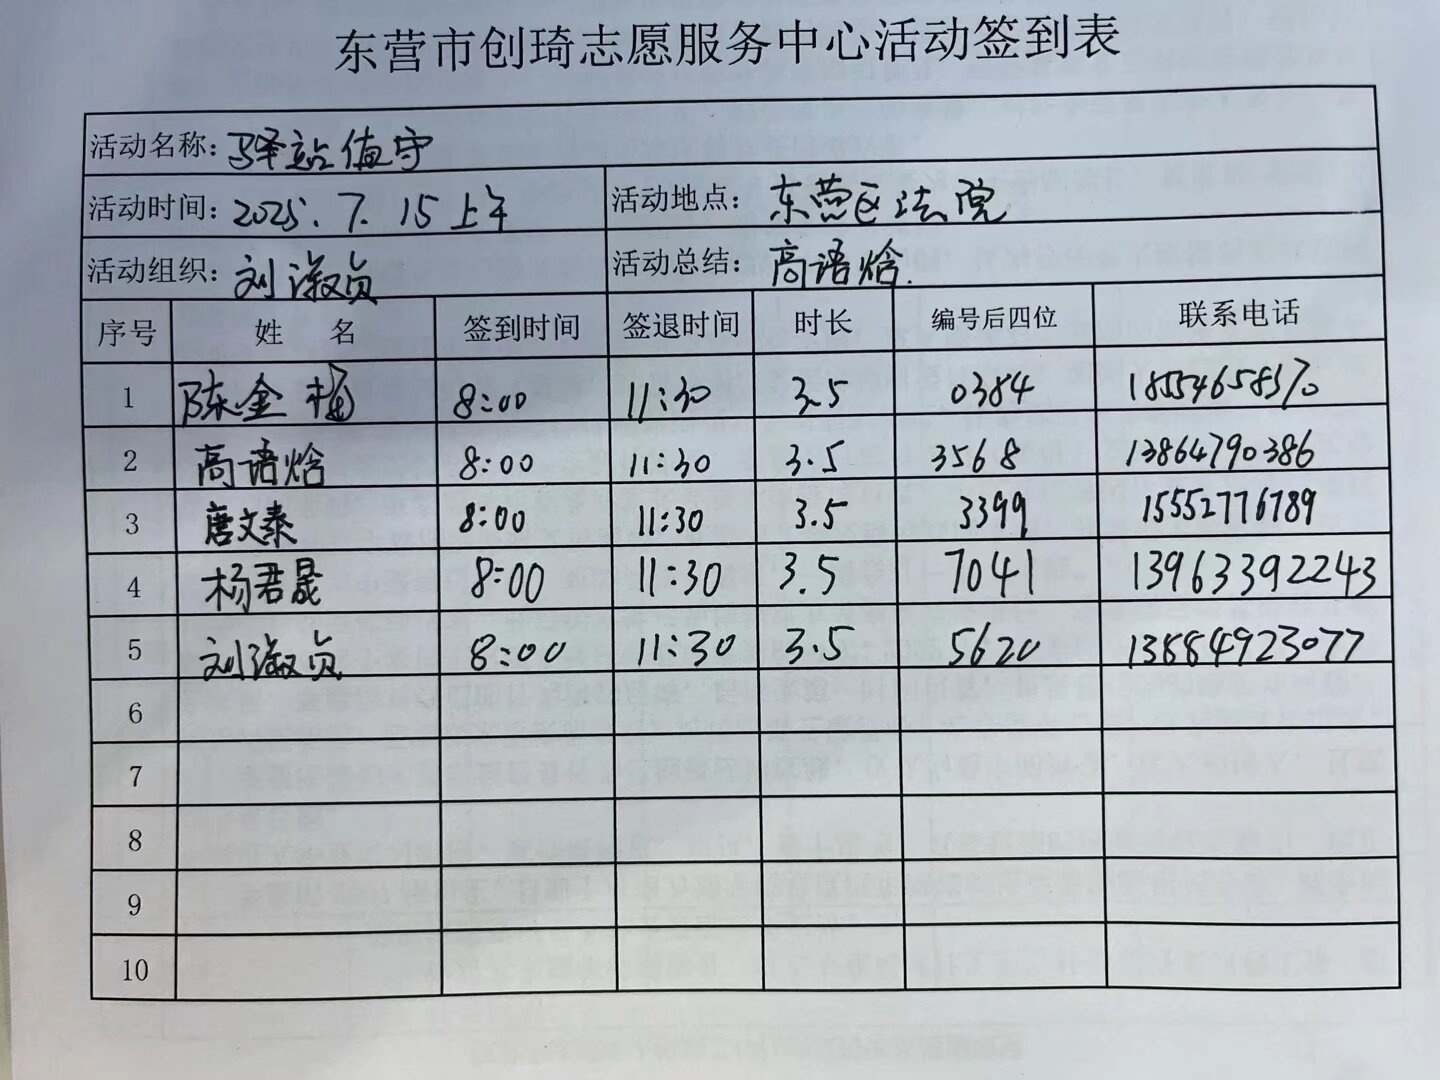 东营市创琦志愿服务中心活动签到表
活动名称：驿站值守
活动时间：2025.7.15上午 活动地点：东营区法院
活动组织：刘淑贞 活动总结：高语焓.
序号 姓 名 签到时间 签退时间 时长 编号后四位 联系电话
1 陈金梅 8:00 11:30 3.5 0384 18554658370
2 高语焓 8:00 11:30 3.5 3568 13864790386
3 唐文泰 8:00 11:30 3.5 3399 15552776789
4 杨君晟 8:00 11:30 3.5 7041 13963392243
5 刘淑贞 8:00 11:30 3.5 5620 13884923077
6
7
8
9
10